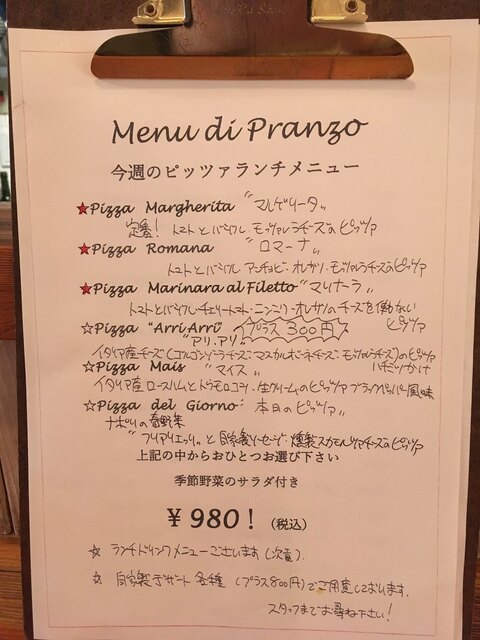 Menu di Pranzo
今週のピッツァランチメニュー
★Pizza Margherita "マルゲリータ"
定番! トマトとバジル・モッツァレラチーズのピッツァ
★Pizza Romana "ロマーナ"
トマトとバジル・アンチョビ・オレガノ・モッツァレラチーズのピッツァ
★Pizza Marinara al Filetto "マリナーラ"
トマトとバジル・チェリートマト・ニンニク・オレガノのチーズを使わない
ピッツァ
☆Pizza "Arri Arri" プラス300円
"アリ・アリ"
イタリア産チーズ(ゴルゴンゾーラチーズ・マスカルポーネチーズ・モッツァレラチーズ)のピッツァ
ハチミツかけ
☆Pizza Mais "マイス"
イタリア産ロースハムとトウモロコシ・生クリームのピッツァ ブラックペッパー風味
☆Pizza del Giorno: 本日のピッツァ"
ナポリの春野菜
"フリアリエッリ"と自家製ソーセージ・燻製スカモルツァチーズのピッツァ
上記の中からおひとつお選び下さい
季節野菜のサラダ付き
¥980! (税込)
☆ ランチドリンクメニューございます(次頁).
☆ 自家製デザート各種(プラス800円)でご用意しております.
スタッフまでお尋ね下さい!